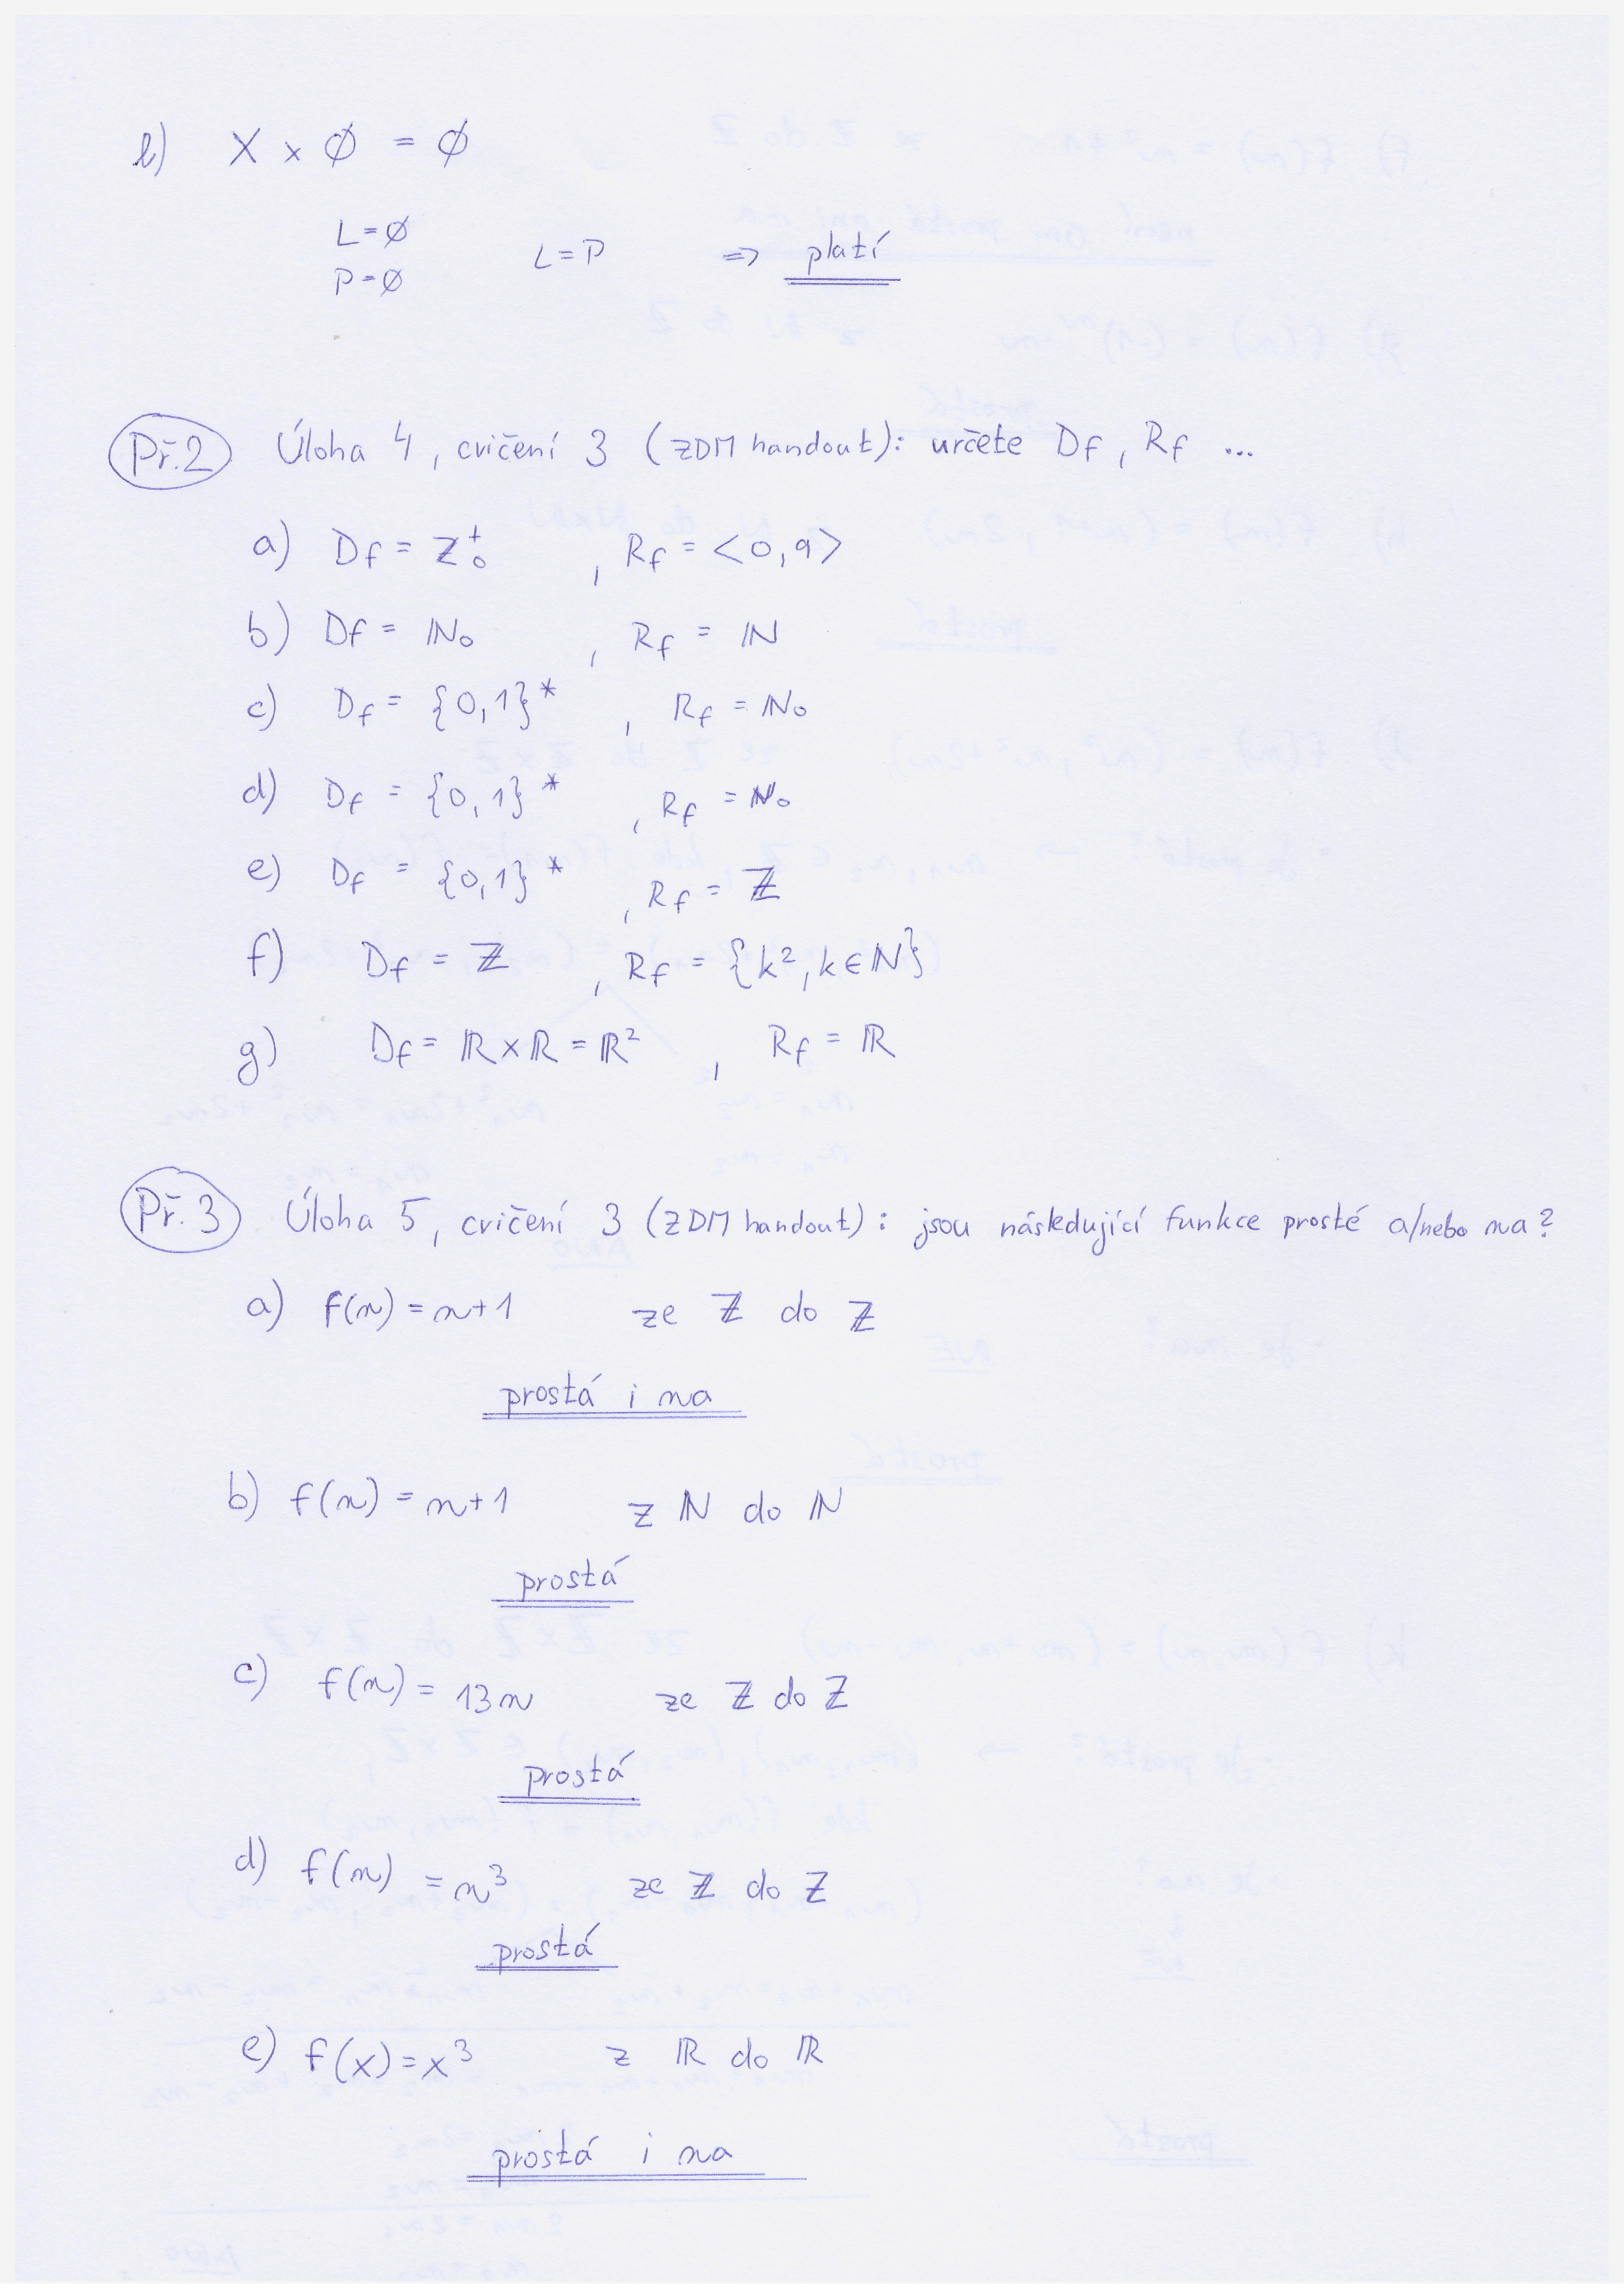 l) X × ∅ = ∅
L=∅
P=∅
L=P ⇒ platí
Př.2 Úloha 4, cvičení 3 (ZDM handout): určete Df, Rf ...
a) Df = Z₀⁺ , Rf = <0,9>
b) Df = ℕ₀ , Rf = ℕ
c) Df = {0,1}* , Rf = ℕ₀
d) Df = {0,1}* , Rf = ℕ₀
e) Df = {0,1}* , Rf = ℤ
f) Df = ℤ , Rf = {k², k∈ℕ}
g) Df = ℝ×ℝ = ℝ² , Rf = ℝ
Př. 3 Úloha 5, cvičení 3 (ZDM handout): jsou následující funkce prosté a/nebo na?
a) f(n) = n+1 ze ℤ do ℤ
prostá i na
b) f(n) = n+1 z ℕ do ℕ
prostá
c) f(n) = 13n ze ℤ do ℤ
prostá
d) f(n) = n³ ze ℤ do ℤ
prostá
e) f(x) = x³ z ℝ do ℝ
prostá i na